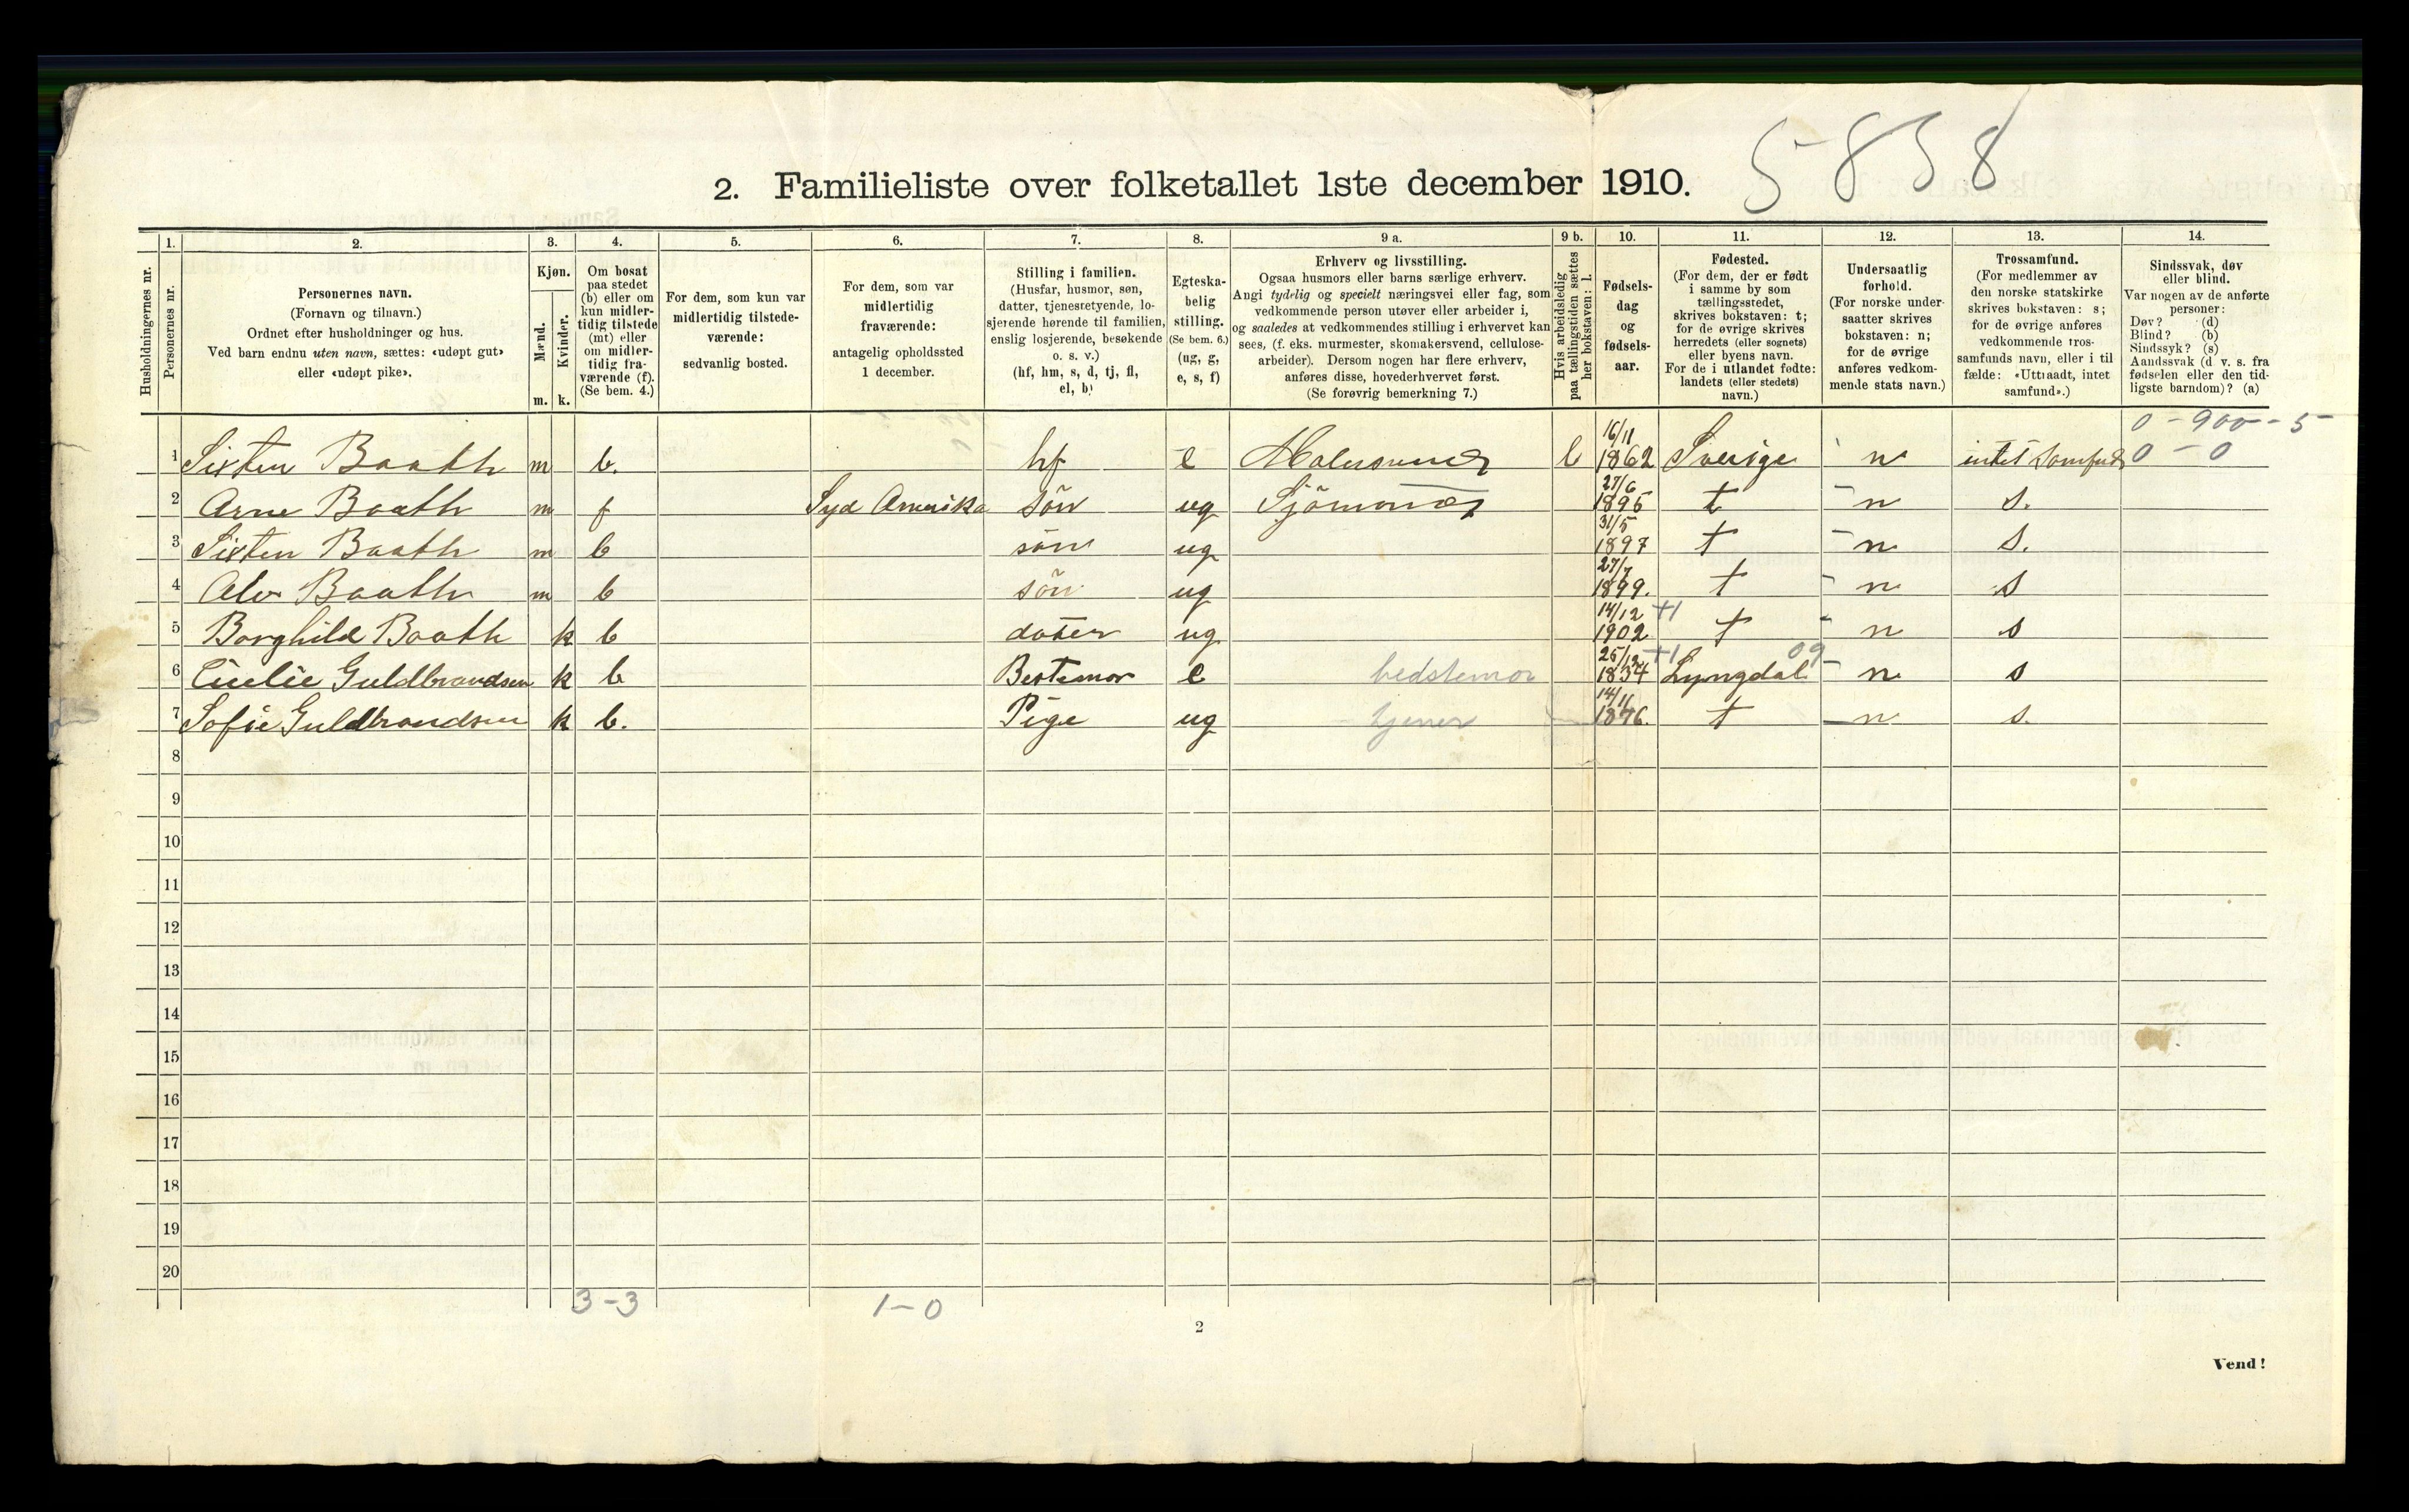 5858
2. Familieliste over folketallet 1ste december 1910.
Husholdningernes nr.
1. Personernes nr.
2. Personernes navn.
(Fornavn og tilnavn.)
Ordnet efter husholdninger og hus.
Ved barn endnu uten navn, sættes: «udøpt gut»
eller «udøpt pike».
3. Kjøn.
Mænd. m.
Kvinder. k.
4. Om bosat
paa stedet
(b) eller om
kun midler-
tidig tilstede
(mt) eller
om midler-
tidig fra-
værende (f).
(Se bem. 4.)
5. For dem, som kun var
midlertidig tilstede-
værende:
sedvanlig bosted.
6. For dem, som var
midlertidig
fraværende:
antagelig opholdssted
1 december.
7. Stilling i familien.
(Husfar, husmor, søn,
datter, tjenestetyende, lo-
sjerende hørende til familien,
enslig losjerende, besøkende
o. s. v.)
(hf, hm, s, d, tj, fl,
el, b)
8. Egteska-
belig
stilling.
(Se bem. 6.)
(ug, g,
e, s, f)
9 a. Erhverv og livsstilling.
Ogsaa husmors eller barns særlige erhverv.
Angi tydelig og specielt næringsvei eller fag, som
vedkommende person utøver eller arbeider i,
og saaledes at vedkommendes stilling i erhvervet kan
sees, (f. eks. murmester, skomakersvend, cellulose-
arbeider). Dersom nogen har flere erhverv,
anføres disse, hovederhvervet først.
(Se forøvrig bemerkning 7.)
9 b. Hvis arbeidsledig
paa tællingstiden sættes
her bokstaven: l.
10. Fødsels-
dag
og
fødsels-
aar.
11. Fødested.
(For dem, der er født
i samme by som
tællingsstedet,
skrives bokstaven: t;
for de øvrige skrives
herredets (eller sognets)
eller byens navn.
For de i utlandet fødte:
landets (eller stedets)
navn.)
12. Undersaatlig
forhold.
(For norske under-
saatter skrives
bokstaven: n;
for de øvrige
anføres vedkom-
mende stats navn.)
13. Trossamfund.
(For medlemmer av
den norske statskirke
skrives bokstaven: s;
for de øvrige anføres
vedkommende tros-
samfunds navn, eller i til
fælde: «Uttraadt, intet
samfund».)
14. Sindssvak, døv
eller blind.
Var nogen av de anførte
personer:
Døv? (d)
Blind? (b)
Sindssyk? (s)
Aandssvak (d. v. s. fra
fødselen eller den tid-
ligste barndom)? (a)
0 - 900 - 5
1 Sixten Baath m b. hf e Malersvend l 16/11 1862 Sverige n intet Samfund 0 - 0
2 Arne Baath m f Syd Amerika sön ug Sjömand 27/6 1895 t n s.
3 Sixten Baath m b sön ug 31/5 1897 t n s.
4 Alv Baath m b sön ug 27/7 1899. t n s
5 Borghild Baath k b dater ug 14/12 1902 +1 t n s
6 Cicilie Guldbrandsen k b Bestemor e bedstemor 25/12 1834 +1 Lyngdal 09 n s
7 Sofie Guldbrandsen k b. Pige ug tjener 14/11 1876. t n s.
8
9
10
11
12
13
14
15
16
17
18
19
20
3-3 1-0
2
Vend!